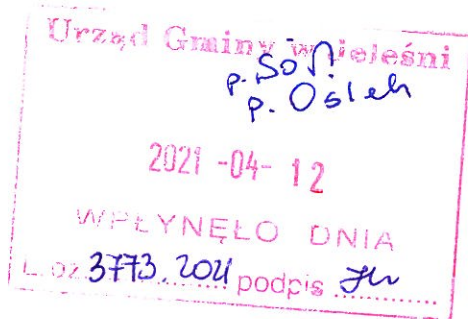 Urząd Gminy w Jeleśni
p.
p. Osiek
2021 -04- 12
WPŁYNĘŁO DNIA
L.dz. 3773.2021 podpis